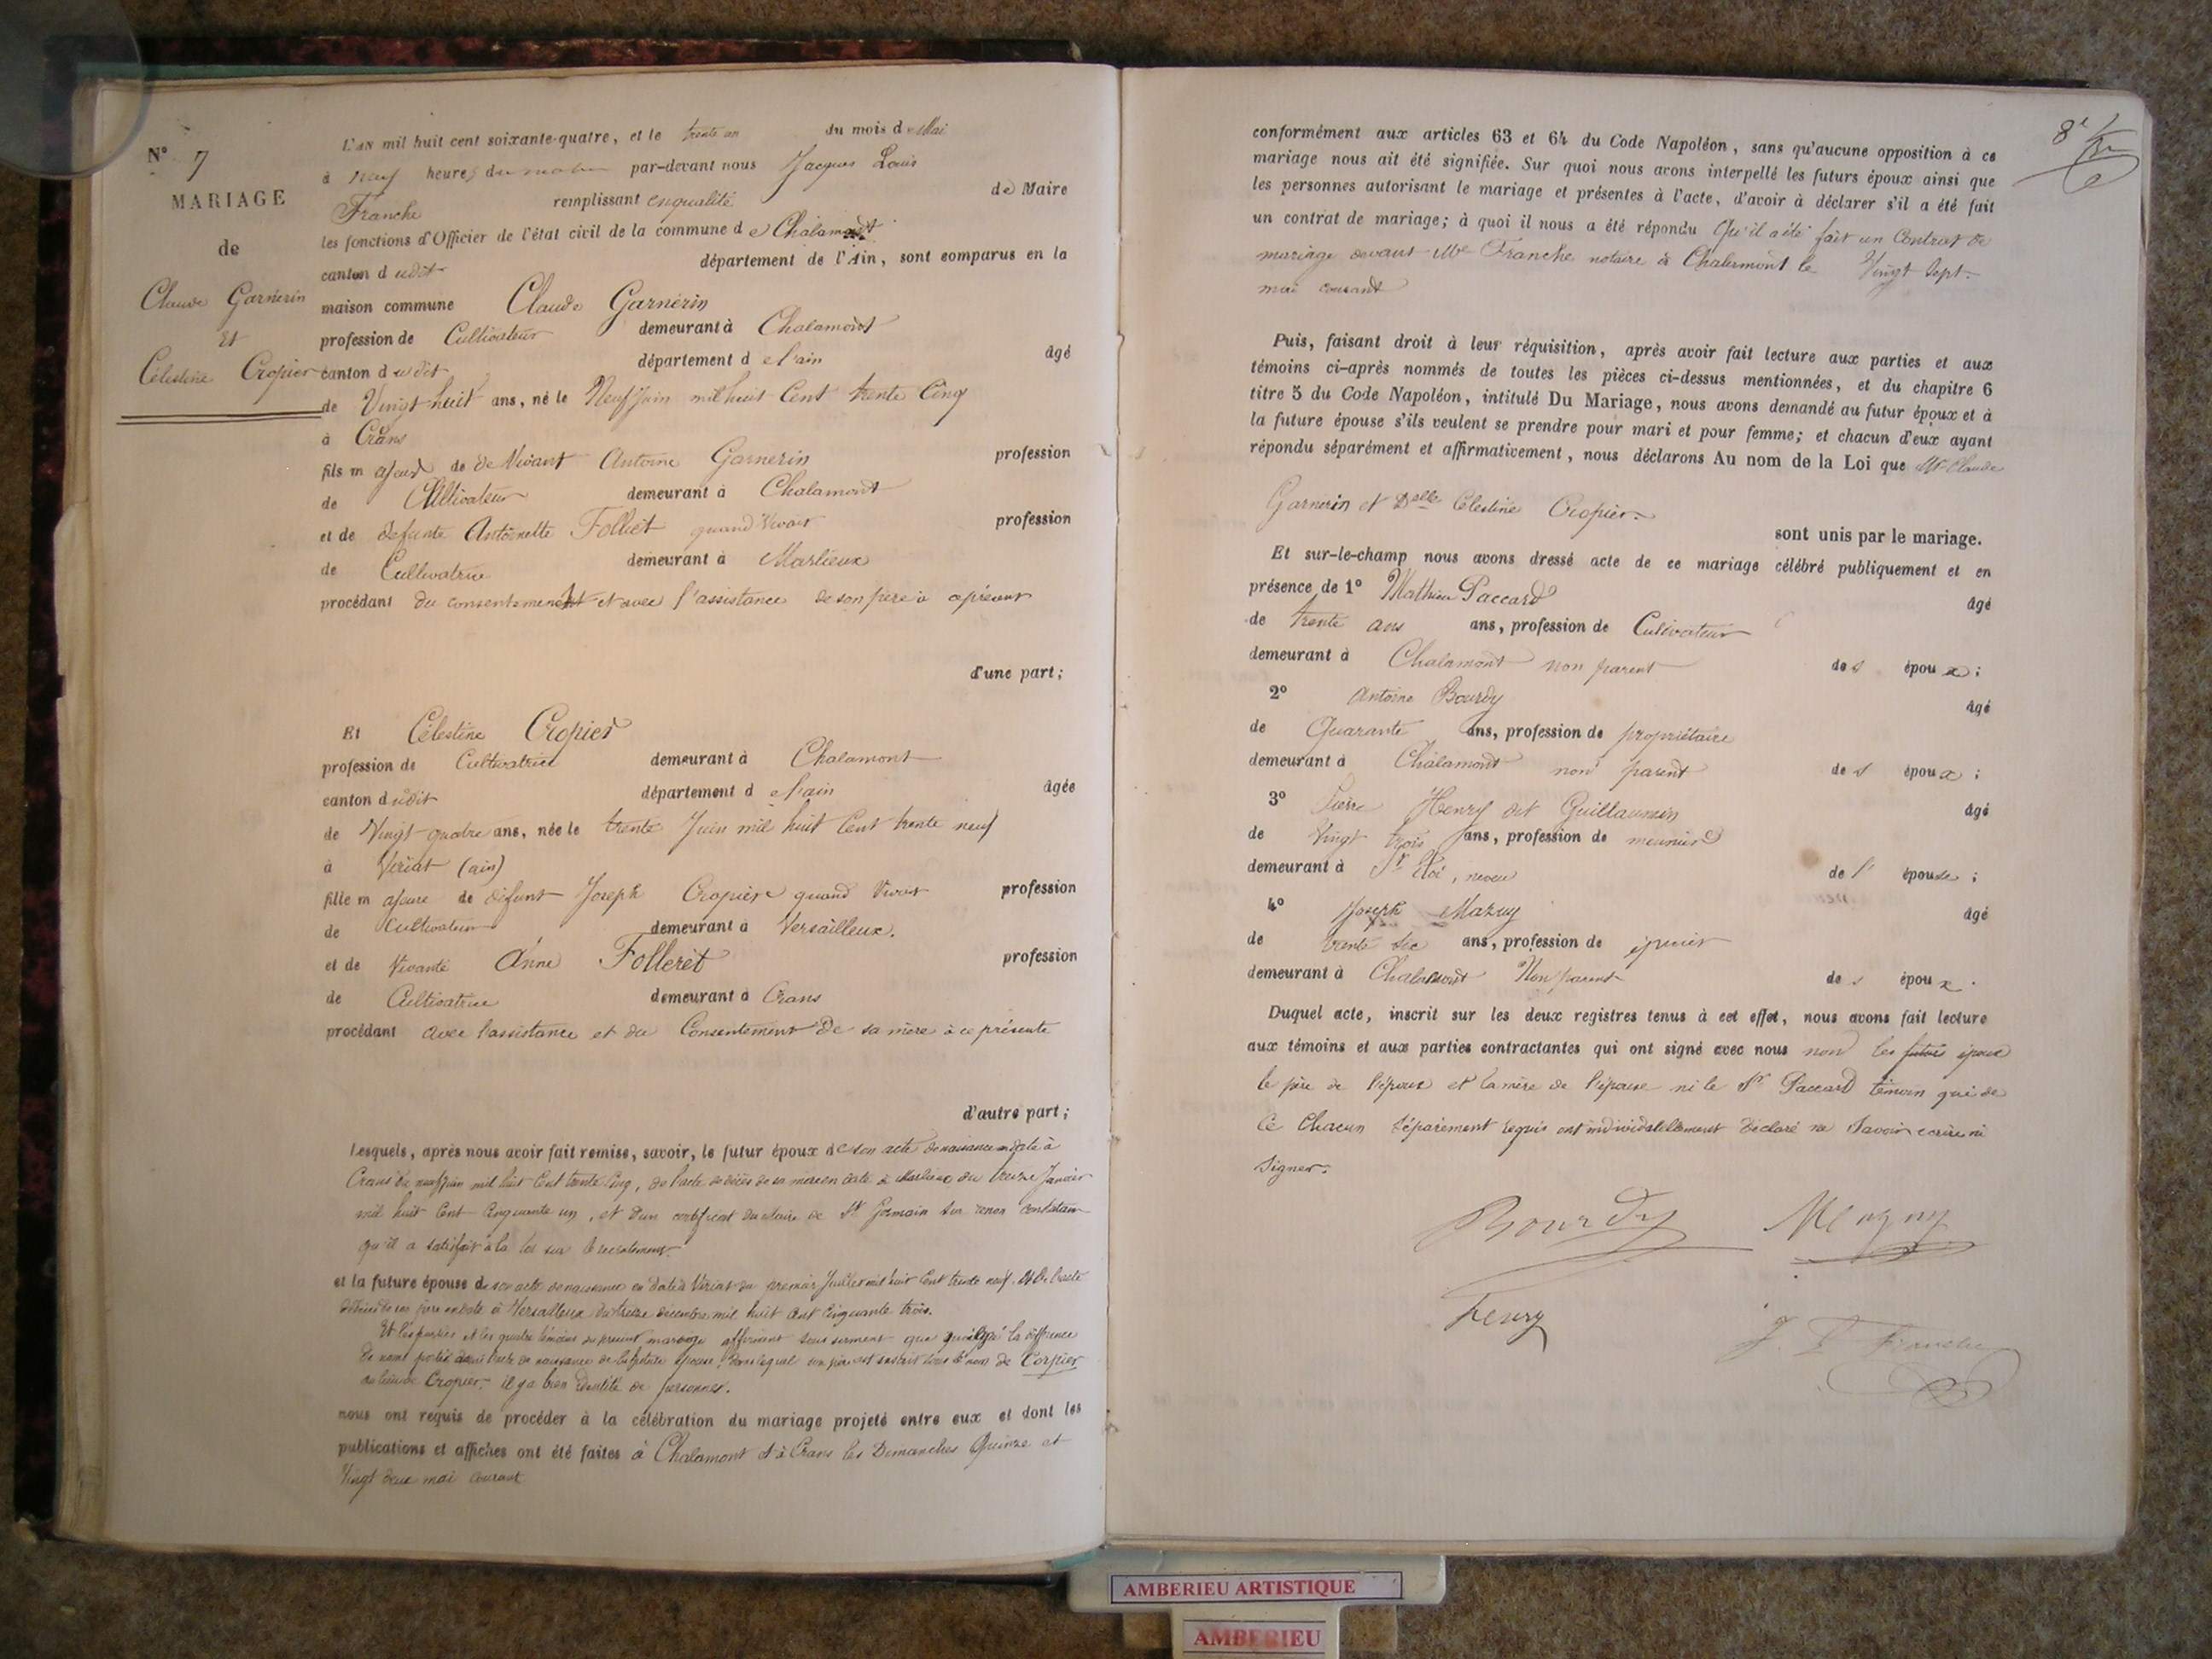 N° 7
MARIAGE
de
Claude Garnerin
Et
Célestine Cropier
L'AN mil huit cent soixante-quatre, et le trente un du mois de Mai
à neuf heures du matin par-devant nous Jacques Louis
Franche remplissant en qualité de Maire
les fonctions d'Officier de l'état civil de la commune de Chalamont
canton dudit département de l'Ain, sont comparus en la
maison commune Claude Garnerin
profession de Cultivateur demeurant à Chalamont
canton dudit département de l'ain âgé
de Vingt huit ans, né le Neuf Juin mil huit Cent trente Cinq
à Crans
fils majeur de Vivant Antoine Garnerin profession
de Cultivateur demeurant à Chalamont
et de defunte Antoinette Folliet quand Vivait profession
de Cultivatrice demeurant à Marlieux
procédant du consentement et avec l'assistance de son père à ce présent
d'une part;
Et Célestine Cropier
profession de Cultivatrice demeurant à Chalamont
canton dudit département de l'ain âgée
de Vingt quatre ans, née le trente Juin mil huit Cent trente neuf
à Veriat (ain)
fille majeure de défunt Joseph Cropier quand Vivait profession
de Cultivateur demeurant à Versailleux.
et de Vivante Anne Folleret profession
de Cultivatrice demeurant à Crans
procédant avec l'assistance et du Consentement De sa mère à ce présente
d'autre part;
Lesquels, après nous avoir fait remise, savoir, le futur époux de son acte de naissance en date à
Crans du neuf juin mil huit Cent trente Cinq, de l'acte de décès de sa mère en date à Marlieux du treize Janvier
mil huit Cent Cinquante un, et d'un certificat du Maire de St Germain sur renon constatant
qu'il a satisfait à la loi sur le recrutement.
et la future épouse de son acte de naissance en date à Vériat du premier Juillet mil huit Cent trente neuf. Et de l'acte
de décès de son père en date à Versailleux du treize décembre mil huit Cent Cinquante trois.
Et les parties et les quatre témoins du présent mariage affirment sous serment que malgré la différence
de nom portée dans l'acte de naissance de la future épouse, dans lequel son père est inscrit sous le nom de Corpier
au lieu de Cropier, il y a bien identité de personnes.
nous ont requis de procéder à la célébration du mariage projeté entre eux et dont les
publications et affiches ont été faites à Chalamont et à Crans les Dimanches Quinze et
Vingt deux mai courant
conformément aux articles 63 et 64 du Code Napoléon, sans qu'aucune opposition à ce
mariage nous ait été signifiée. Sur quoi nous avons interpellé les futurs époux ainsi que
les personnes autorisant le mariage et présentes à l'acte, d'avoir à déclarer s'il a été fait
un contrat de mariage; à quoi il nous a été répondu Qu'il a été fait un Contrat de
mariage devant Me Franche notaire à Chalamont le Vingt Sept
mai courant
Puis, faisant droit à leur réquisition, après avoir fait lecture aux parties et aux
témoins ci-après nommés de toutes les pièces ci-dessus mentionnées, et du chapitre 6
titre 5 du Code Napoléon, intitulé Du Mariage, nous avons demandé au futur époux et à
la future épouse s'ils veulent se prendre pour mari et pour femme; et chacun d'eux ayant
répondu séparément et affirmativement, nous déclarons Au nom de la Loi que Mr Claude
Garnerin et Delle Célestine Cropier.
sont unis par le mariage.
Et sur-le-champ nous avons dressé acte de ce mariage célébré publiquement et en
présence de 1° Mathieu Paccard âgé
de trente ans ans, profession de Cultivateur
demeurant à Chalamont non parent des époux;
2° Antoine Bourdy âgé
de Quarante ans, profession de propriétaire
demeurant à Chalamont non parent des époux;
3° Pierre Henry dit Guillaumin âgé
de Vingt trois ans, profession de meunier
demeurant à St Eloi, neveu de l'épouse;
4° Joseph Mazuy âgé
de trente six ans, profession de épicier
demeurant à Chalamont Non parent des époux.
Duquel acte, inscrit sur les deux registres tenus à cet effet, nous avons fait lecture
aux témoins et aux parties contractantes qui ont signé avec nous non les futurs époux
le père de l'époux et la mère de l'épouse ni le Sr Paccard témoin qui de
Ce Chacun Séparément requis ont individuellement déclaré ne Savoir ecrire ni
Signer.
Bourdy Mazuy
henry J. L. Franche
AMBERIEU ARTISTIQUE
AMBERIEU